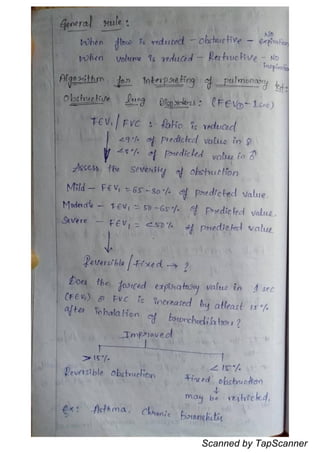 General rule :
When flow is reduced – obstructive – No expiration
When volume is reduced – Restructive – No inspiration
Algorithm for interpreting of pulmonary test:
Obstructive lung disorders : (FEV1 – 1 sec)
FEV1 / FVC : Ratio is reduced
of predicted value in ♀
of predicted value in ♂
Assess the severity of obstruction
Mild – FEV1 = 65-80% of predicted value.
Moderate – FEV1 = 50-65% of predicted value.
Severe – FEV1 = <50% of predicted value
Reversible / Fixed → ?
Does the forced expiratory value in 1 sec
(FEV1) @ FVC is increased by atleast 15%
after inhalation of bronchodilator?
Improved
>15% <15%
Reversible obstruction Fixed obstruction
may be restricted.
Ex: Asthma, Chronic bronchitis
Scanned by TapScanner